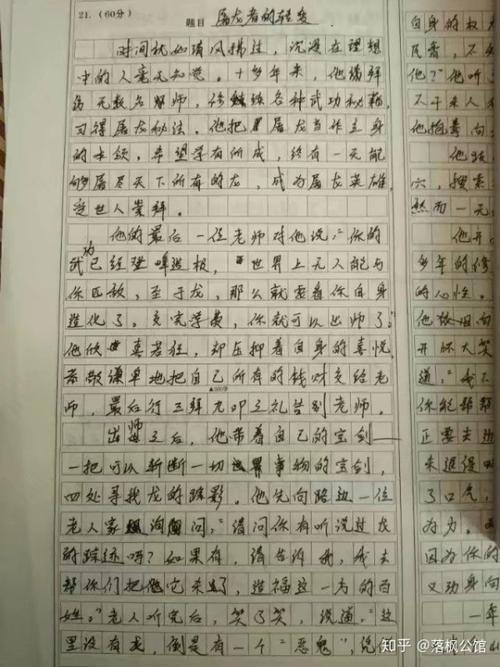 21.(60分)
题目 屠龙者的转变
时间就如清风拂过,沉浸在理想
中的人毫无知觉。十多年来,他遍拜
无数名师,修炼各种武功秘籍,
习得屠龙秘法。他把屠龙当作主身
的本领,希望学有所成,终有一天能
够屠尽天下所有的龙,成为屠龙英雄,
受世人崇拜。
他的最后一位老师对他说:“你的
武功已经登峰造极,世界上无人能与
你匹敌,至于龙,那么就要看你自身
造化了。交完学费,你就可以出师了。
他欣喜若狂,却压抑着自身的喜悦,
谦卑地把自己所有的钱财交给老
师,最后行三拜九叩之礼告别老师。
出师之后,他带着自己的宝剑——
一把可以斩断一切事物的宝剑,
四处寻找龙的踪影。他先向路边一位
老人家询问:“请问你有听说过龙
的踪迹吗?如果有,请告诉我,我去
帮你们把它,造福这一方的百
姓。”老人听完后,笑了笑,说道:“这
里没有龙,倒是有一个“恶鬼”,说
自身的权
民吞,不
他?”他听
不干末人
他抱着向
他
六,搜索
然而一无
他开
多年的修
的心性。
他
开怀大笑
道:“我
你能帮
正要去
来退
了口气,
有力。
因为你的
又功身向
一年
知乎 @落枫公馆